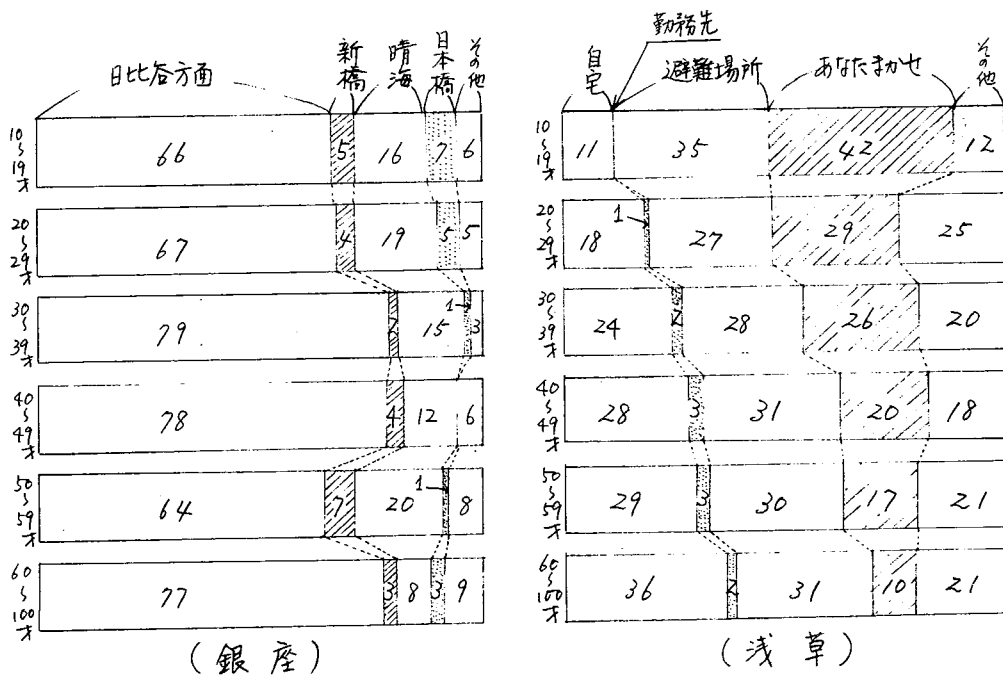 日比谷方面 新橋 晴海 日本橋 その他
10〜19才 66 5 16 7 6
20〜29才 67 4 19 5 5
30〜39才 79 2 15 1 3
40〜49才 78 4 12 6
50〜59才 64 7 20 1 8
60〜100才 77 3 8 3 9
(銀座)
勤務先
自宅 避難場所 あなたまかせ その他
11 35 42 12
20〜29才 18 1 27 29 25
30〜39才 24 2 28 26 20
40〜49才 28 3 31 20 18
50〜59才 29 3 30 17 21
60〜100才 36 2 31 10 21
(浅草)